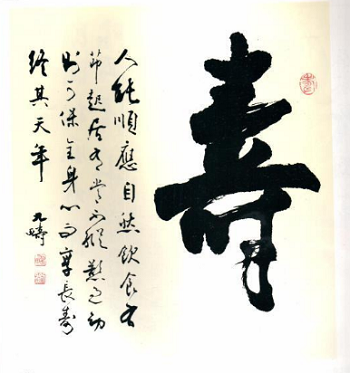 壽
人能順應自然飲食有
節起居有常不縱慾過勞
則可保全身心而享長壽
終其天年
九疇